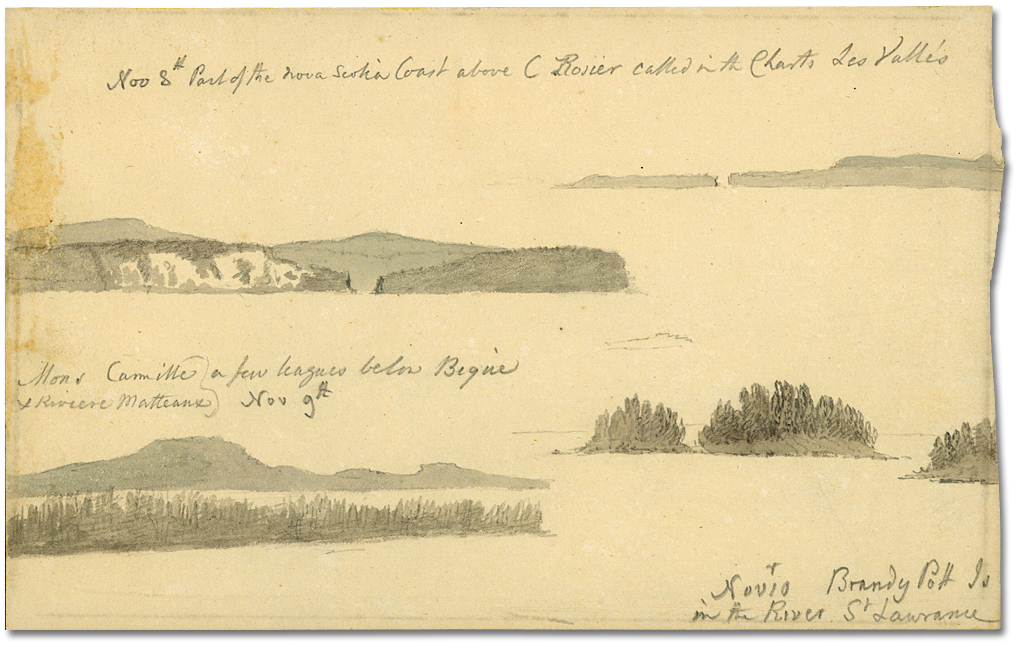 Nov 8th Part of the Nova Scotia Coast above C Rosier called in th Charts Les Vallés
Mons Camille) a few leagues below Beque
& Riviere Matteaux) Nov 9th
Novr 10 Brandy Pott Is
in the River St Lawrance